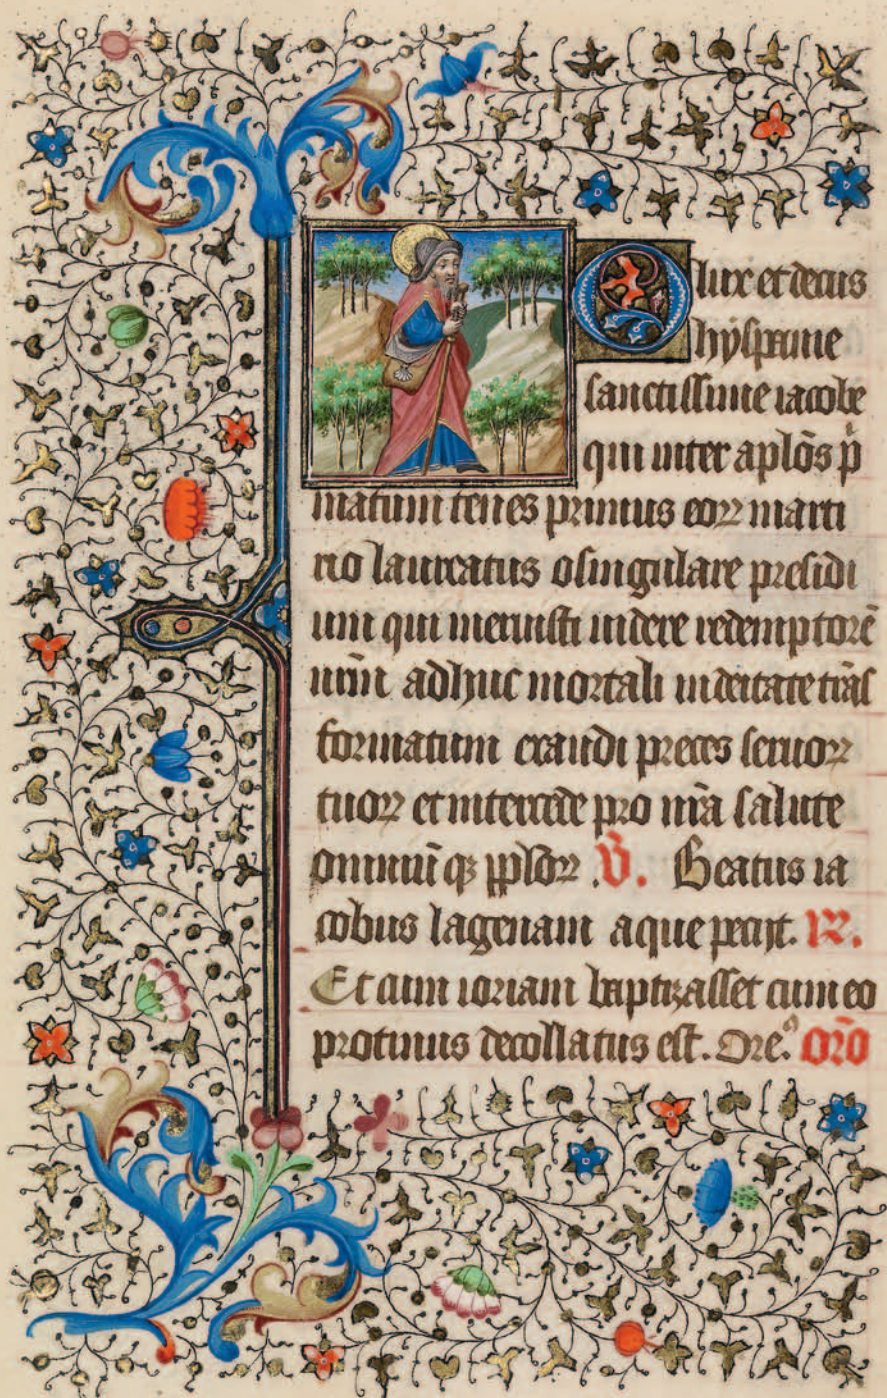 O lux et decus
hyspanie
sanctissime iacobe
qui inter aplōs p̄
matum tenes primus eoꝝ marti
rio laureatus o singulare presidi
um qui meruisti uidere redemptorē
nr̄m adhuc mortali in deitate trās
formatum exaudi preces seruoꝝ
tuoꝝ et intercede pro nr̄a salute
omniūqꝫ pploꝝ .V̄. Beatus ia
cobus lagenam aque peciit. ℟.
Et cum ioziam baptizasset cum eo
protinus decollatus est. Oreꝰ. orō